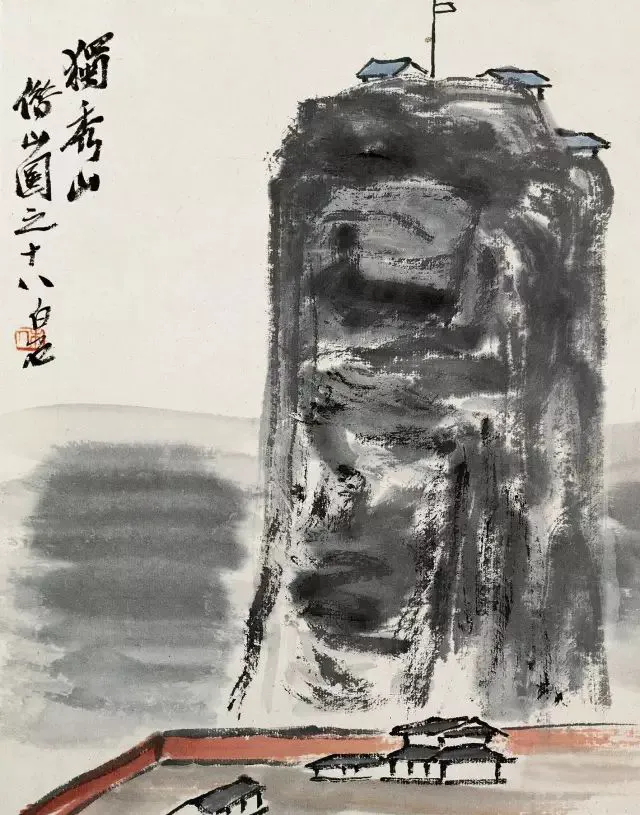 獨秀山
借山圖之十八 白石